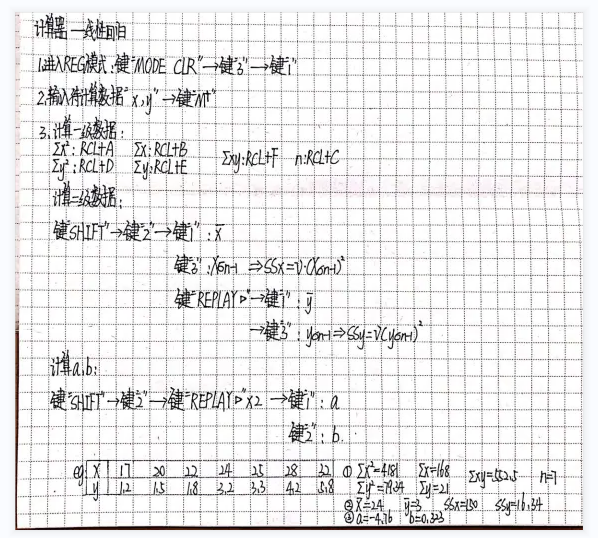 计算器—线性回归
1.进入REG模式:键"MODE CLR"→键"3"→键"1"
2.输入待计算数据"x,y"→键"M+"
3.计算一级数据:
Σx²:RCL+A Σx:RCL+B Σxy:RCL+F n:RCL+C
Σy²:RCL+D Σy:RCL+E
计算二级数据:
键"SHIFT"→键"2"→键"1":x̄
键"3":xσn-1 ⇒SSx=ν·(xσn-1)²
键"REPLAY ▷"→键"1":ȳ
→键"3":yσn-1⇒SSy=ν(yσn-1)²
计算a,b:
键"SHIFT"→键"2"→键"REPLAY ▷"×2 →键"1":a
键"2":b.
eg: x 17 20 22 24 25 28 32 ①Σx²=4181 Σx=168 Σxy=552.5 n=7
y 1.2 1.5 1.8 3.2 3.3 4.2 5.8 Σy²=79.34 Σy=21
②x̄=24 ȳ=3 SSx=150 SSy=16.34
③a=-4.76 b=0.323